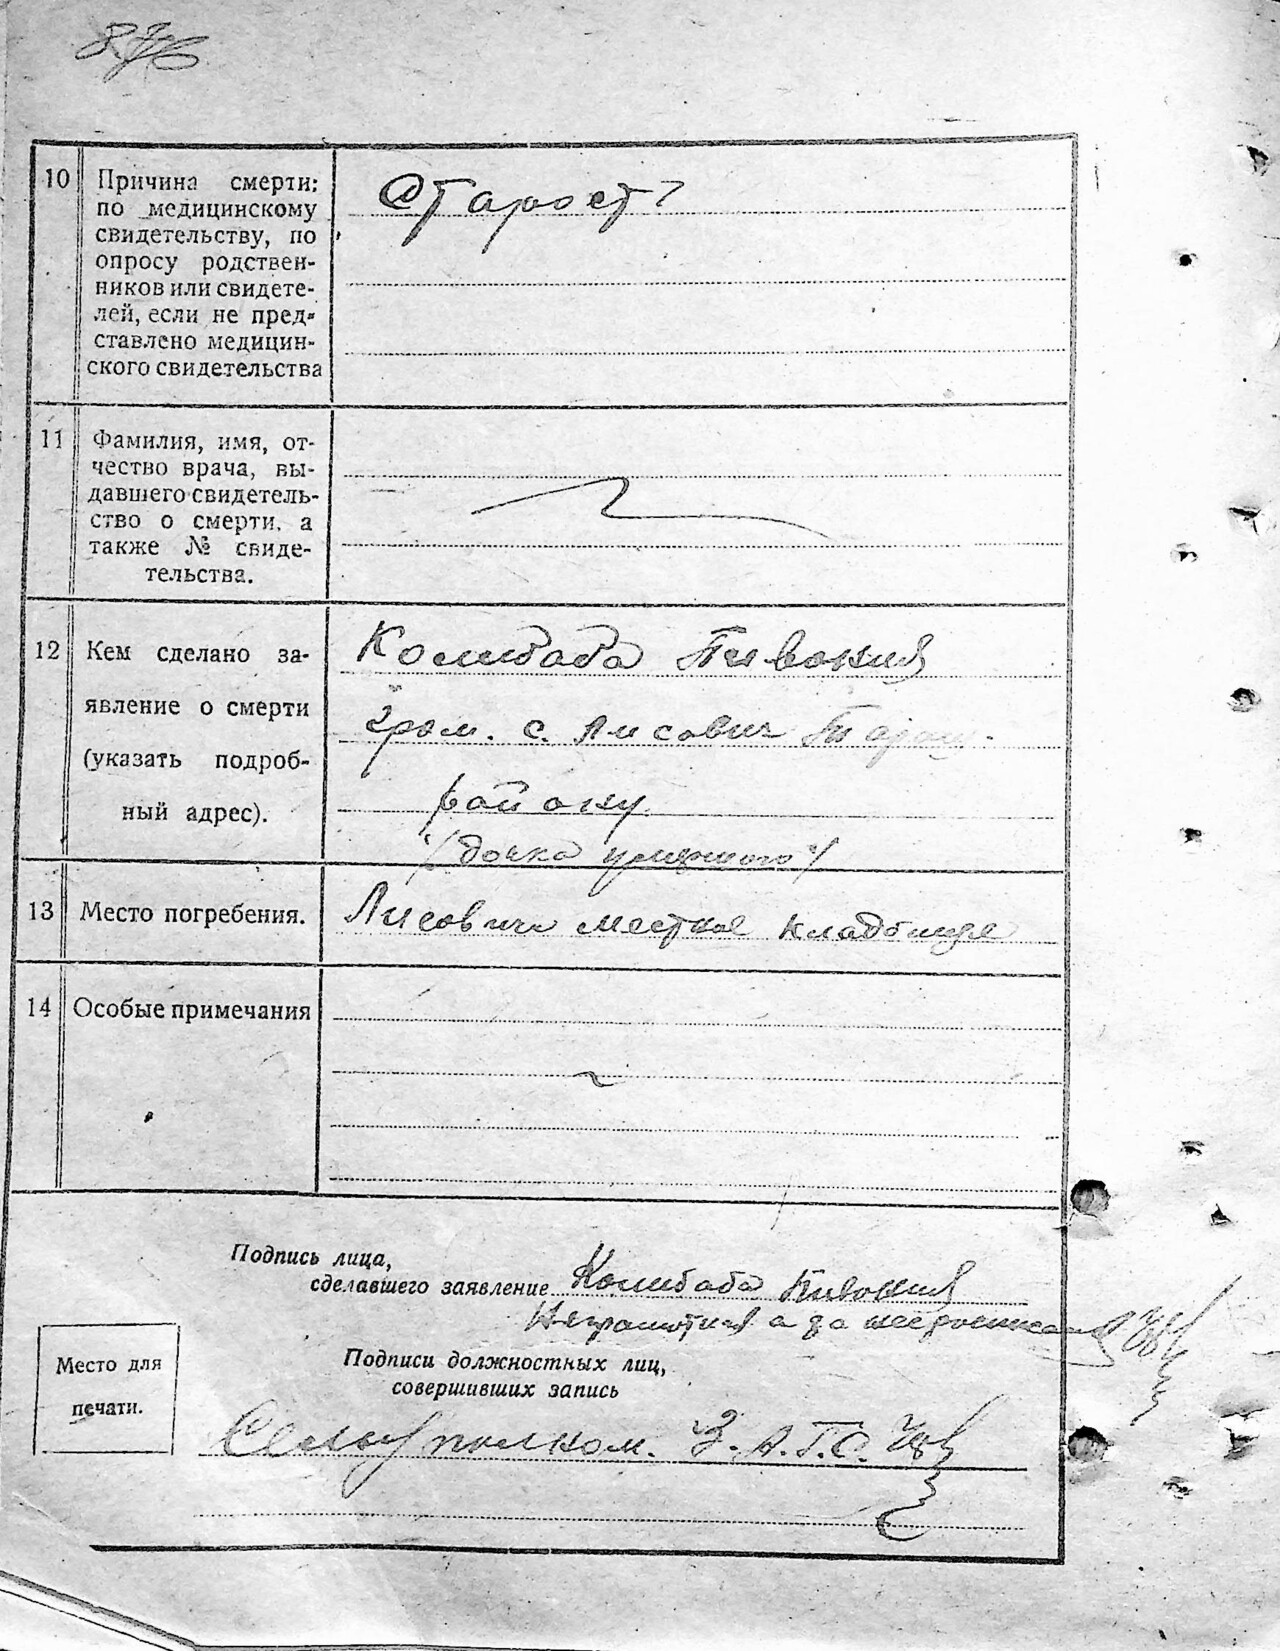 10 Причина смерти:
по медицинскому
свидетельству, по
опросу родствен-
ников или свидете-
лей, если не пред-
ставлено медицин-
ского свидетельства
Старость
11 Фамилия, имя, от-
чество врача, вы-
давшего свидетель-
ство о смерти, а
также № свиде-
тельства.
12 Кем сделано за-
явление о смерти
(указать подроб-
ный адрес).
Колибаба Пивония
Гром. с. Лисович
району
(дочка умершого)
13 Место погребения.
Лисовичи местное кладбище
14 Особые примечания
Подпись лица,
сделавшего заявление Колибаба Пивония
Неграмотная а за нее
Место для
печати.
Подписи должностных лиц,
совершивших запись
З.А.Г.С.